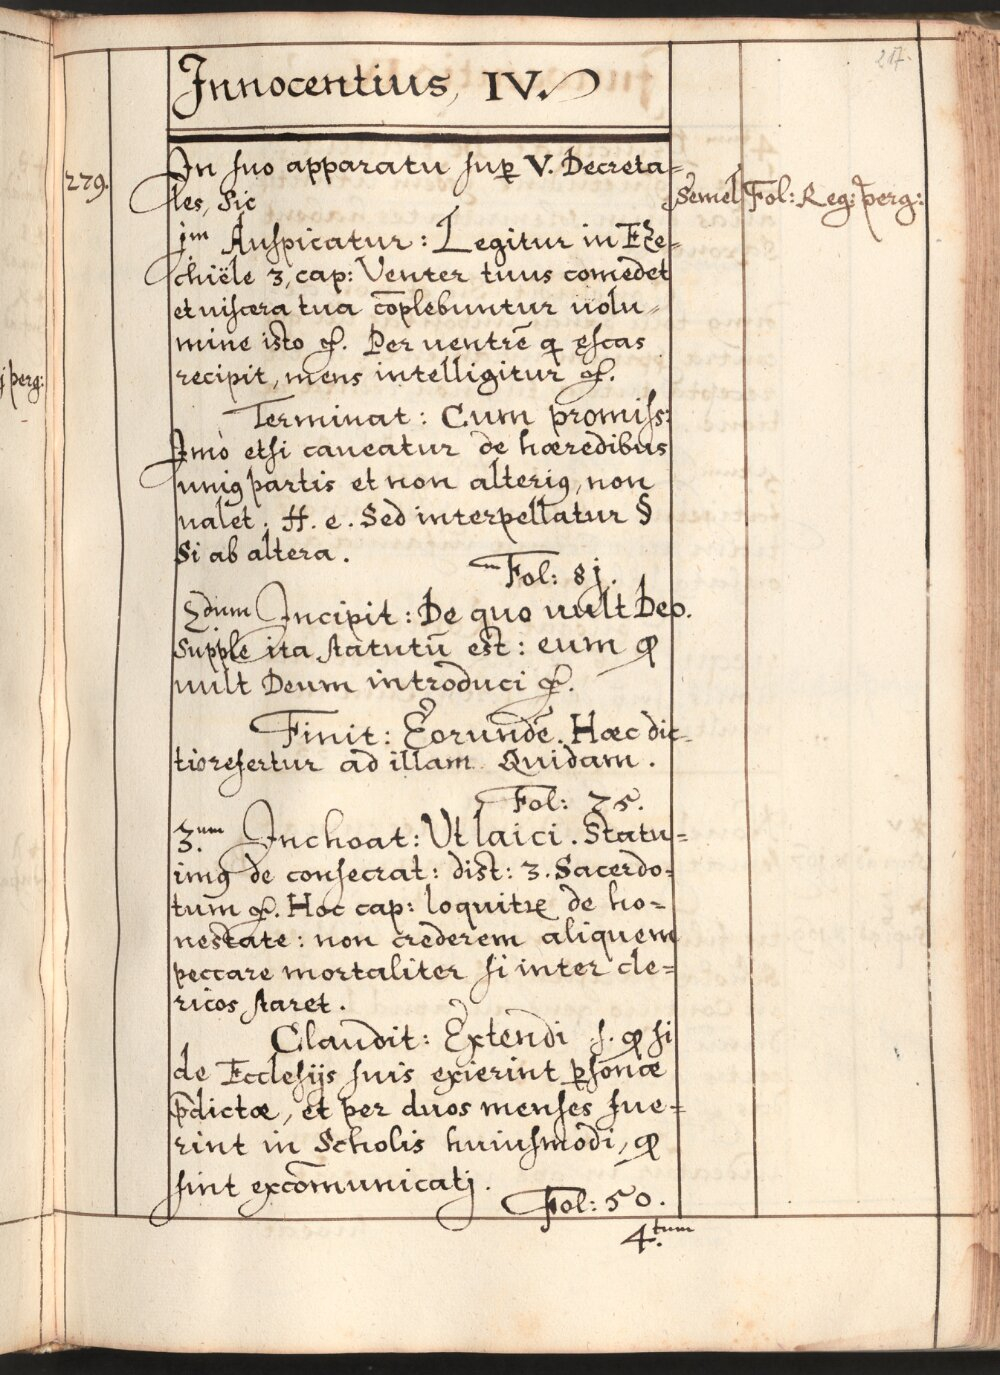 217.
Innocentius, IV.
279.
In suo apparatu sup V. Decreta=
les, Sic
Semel Fol: Reg: perg:
jm Auspicatur: Legitur in Eze=
chiële 3, cap: Venter tuus comedet
et viscera tua cōplebuntur uolu=
mine isto &. Per uentrē q escas
recipit, mens intelligitur &.
j perg:
Terminat: Cum promiss:
Imò etsi caueatur de hæredibus
unig partis et non alterig, non
ualet. ff. e. Sed interpellatur §
Si ab altera.
Fol: 8j.
2dum Incipit: De quo uult Deo.
Supple ita statutū est: eum q
uult Deum introduci &.
Finit: Eorundē. Hæc dic=
tio refertur ad illam Quidam.
Fol: 75.
3.um Inchoat: Ut laici. Statu=
img de consecrat: dist: 3. Sacerdo=
tum &. Hoc cap: loquitr de ho=
nestate: non crederem aliquem
peccare mortaliter si inter cle=
ricos staret.
Claudit: Extendi s. q si
de Ecclesijs suis exierint psonæ
pdictæ, et per duos menses fue=
rint in Scholis huiusmodi, q
sint excōmunicatj.
Fol: 50.
4.tum